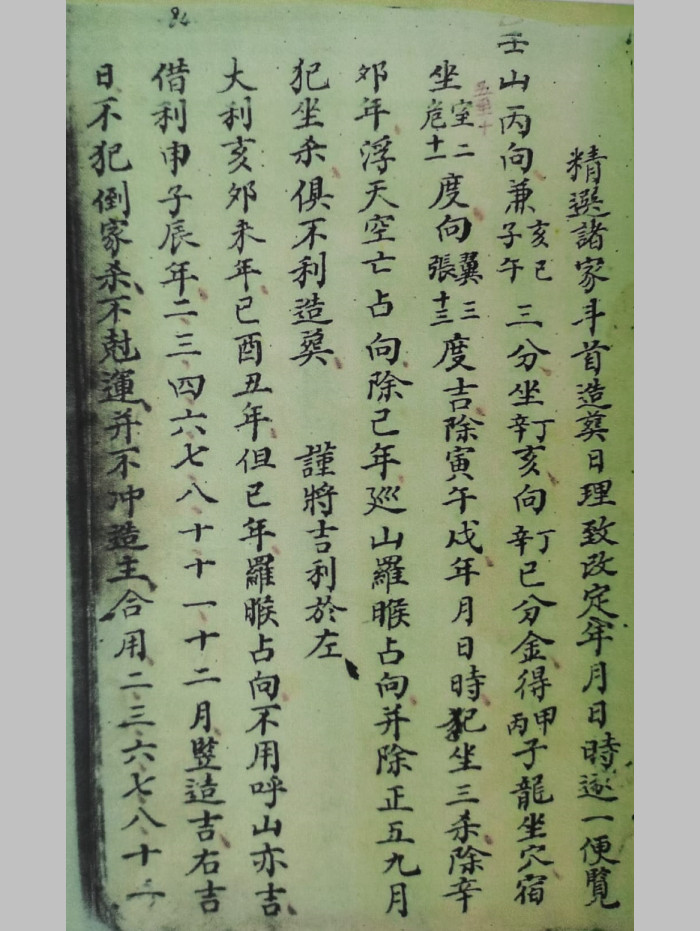 精選諸家斗首造葬日理致改定年月日時逐一便覽
壬山丙向兼亥巳子午三分坐辛丁亥向辛丁巳分金得丙甲子龍坐穴宿
坐危十一室二度向張十三翼三度吉除寅午戌年月日時犯坐三杀除辛
夘年浮天空亡占向除己年廵山羅睺占向并除正五九月
犯坐杀俱不利造葬 謹將吉利於左
大利亥夘未年巳酉丑年但巳年羅睺占向不用呼山亦吉
借利申子辰年二三四六七八十十一十二月竪造吉右吉
日不犯倒家杀不尅運并不冲造主合用二三六七八十